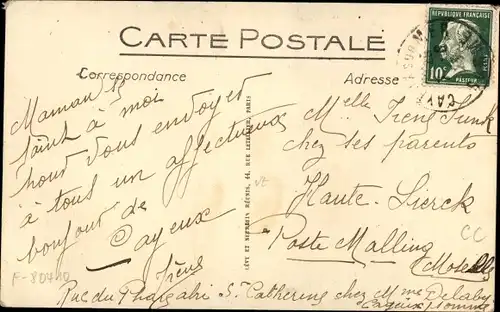 CARTE POSTALE
Correspondance
Adresse
RÉPUBLIQUE FRANÇAISE
10c
PASTEUR
Maman se
joint à moi
pour vous envoyer
à tous un affectueux
bonjour de
Cayeux
Irène
Rue du Phare St Catherine chez Mme Delaby
Cayeux Somme
LÉVY ET NEURDEIN RÉUNIS, 44, RUE LETELLIER, PARIS
Melle Irène
chez ses parents
Haute-Sierck
Poste Malling
Moselle
F-80410
CC